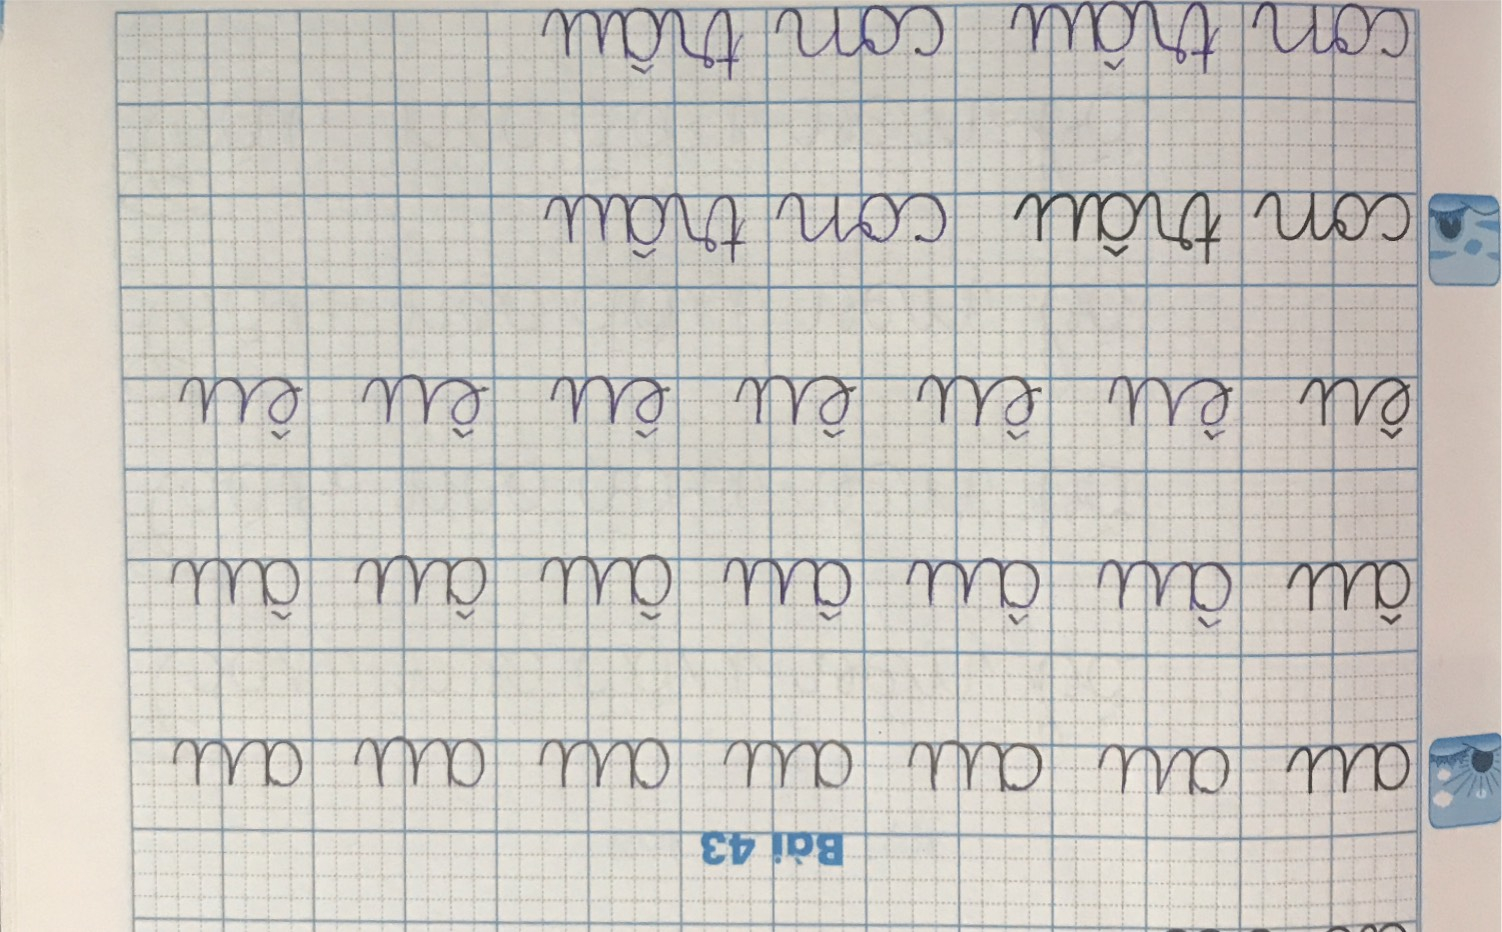 Bài 43
au au au au au au au
âu âu âu âu âu âu âu
êu êu êu êu êu êu êu
con trâu con trâu
con trâu con trâu